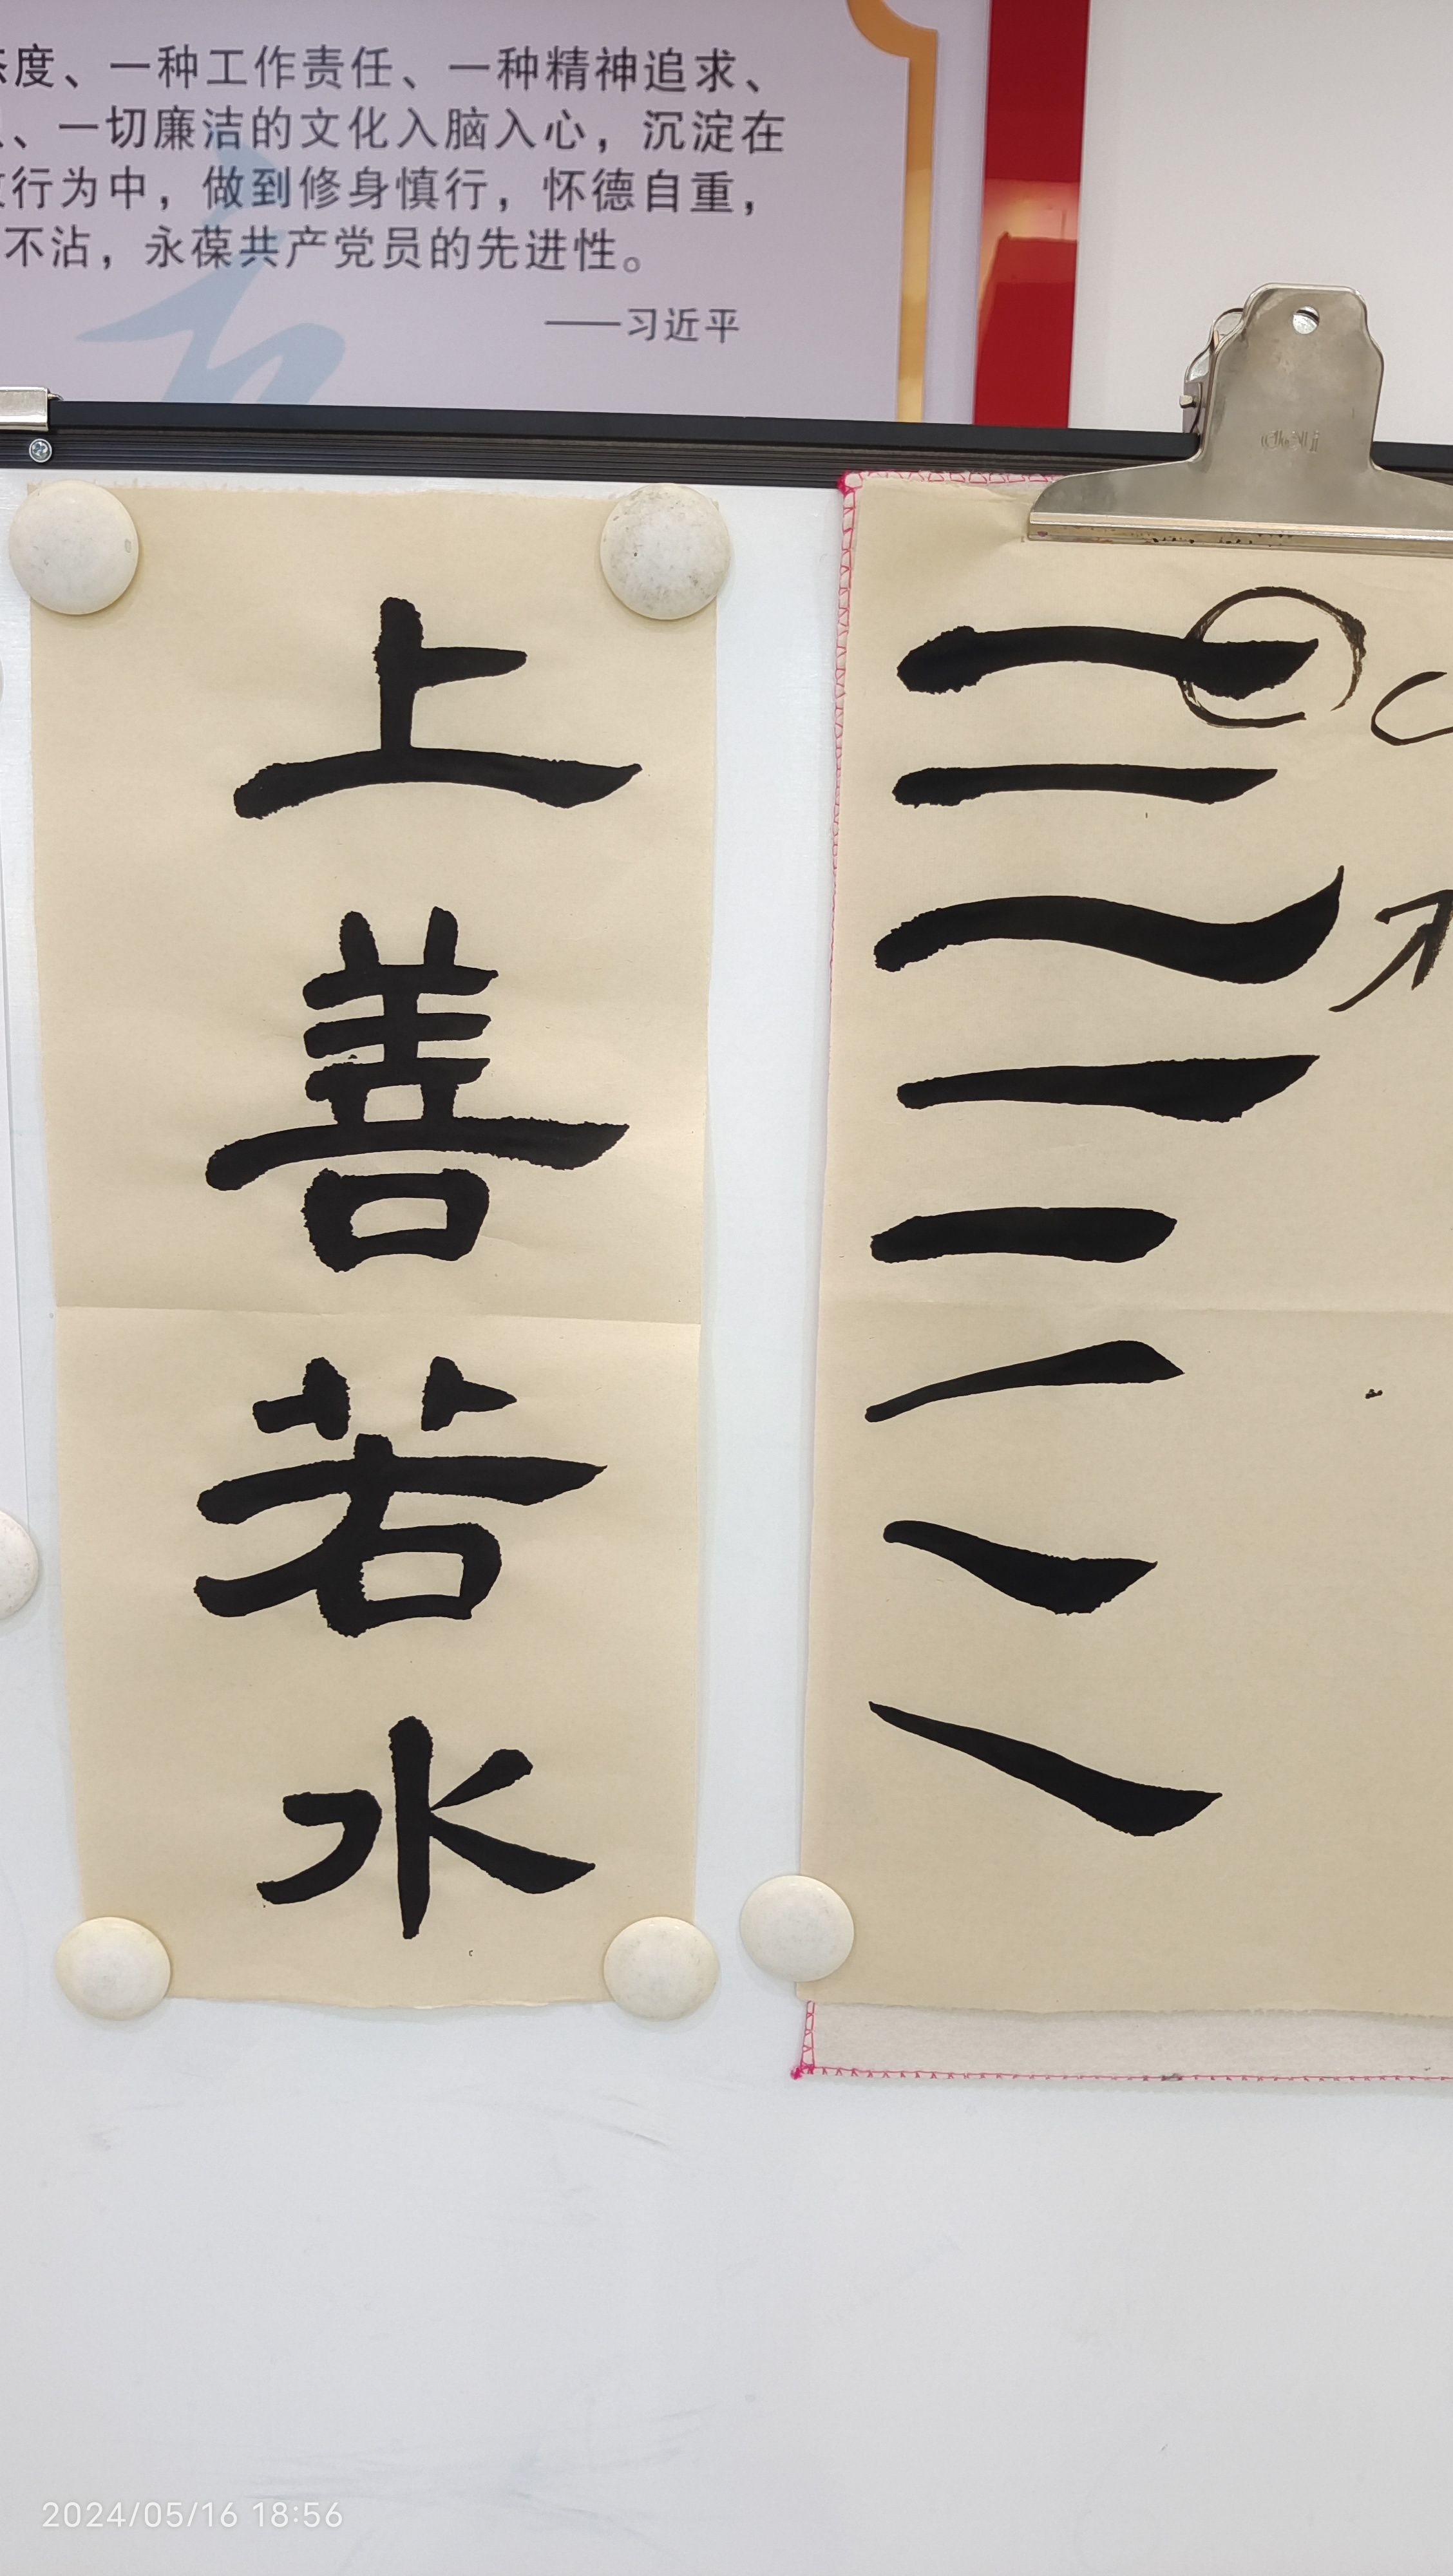 态度、一种工作责任、一种精神追求、
、一切廉洁的文化入脑入心，沉淀在
行为中，做到修身慎行，怀德自重，
不沾，永葆共产党员的先进性。
——习近平
deli
上
善
若
水
2024/05/16 18:56